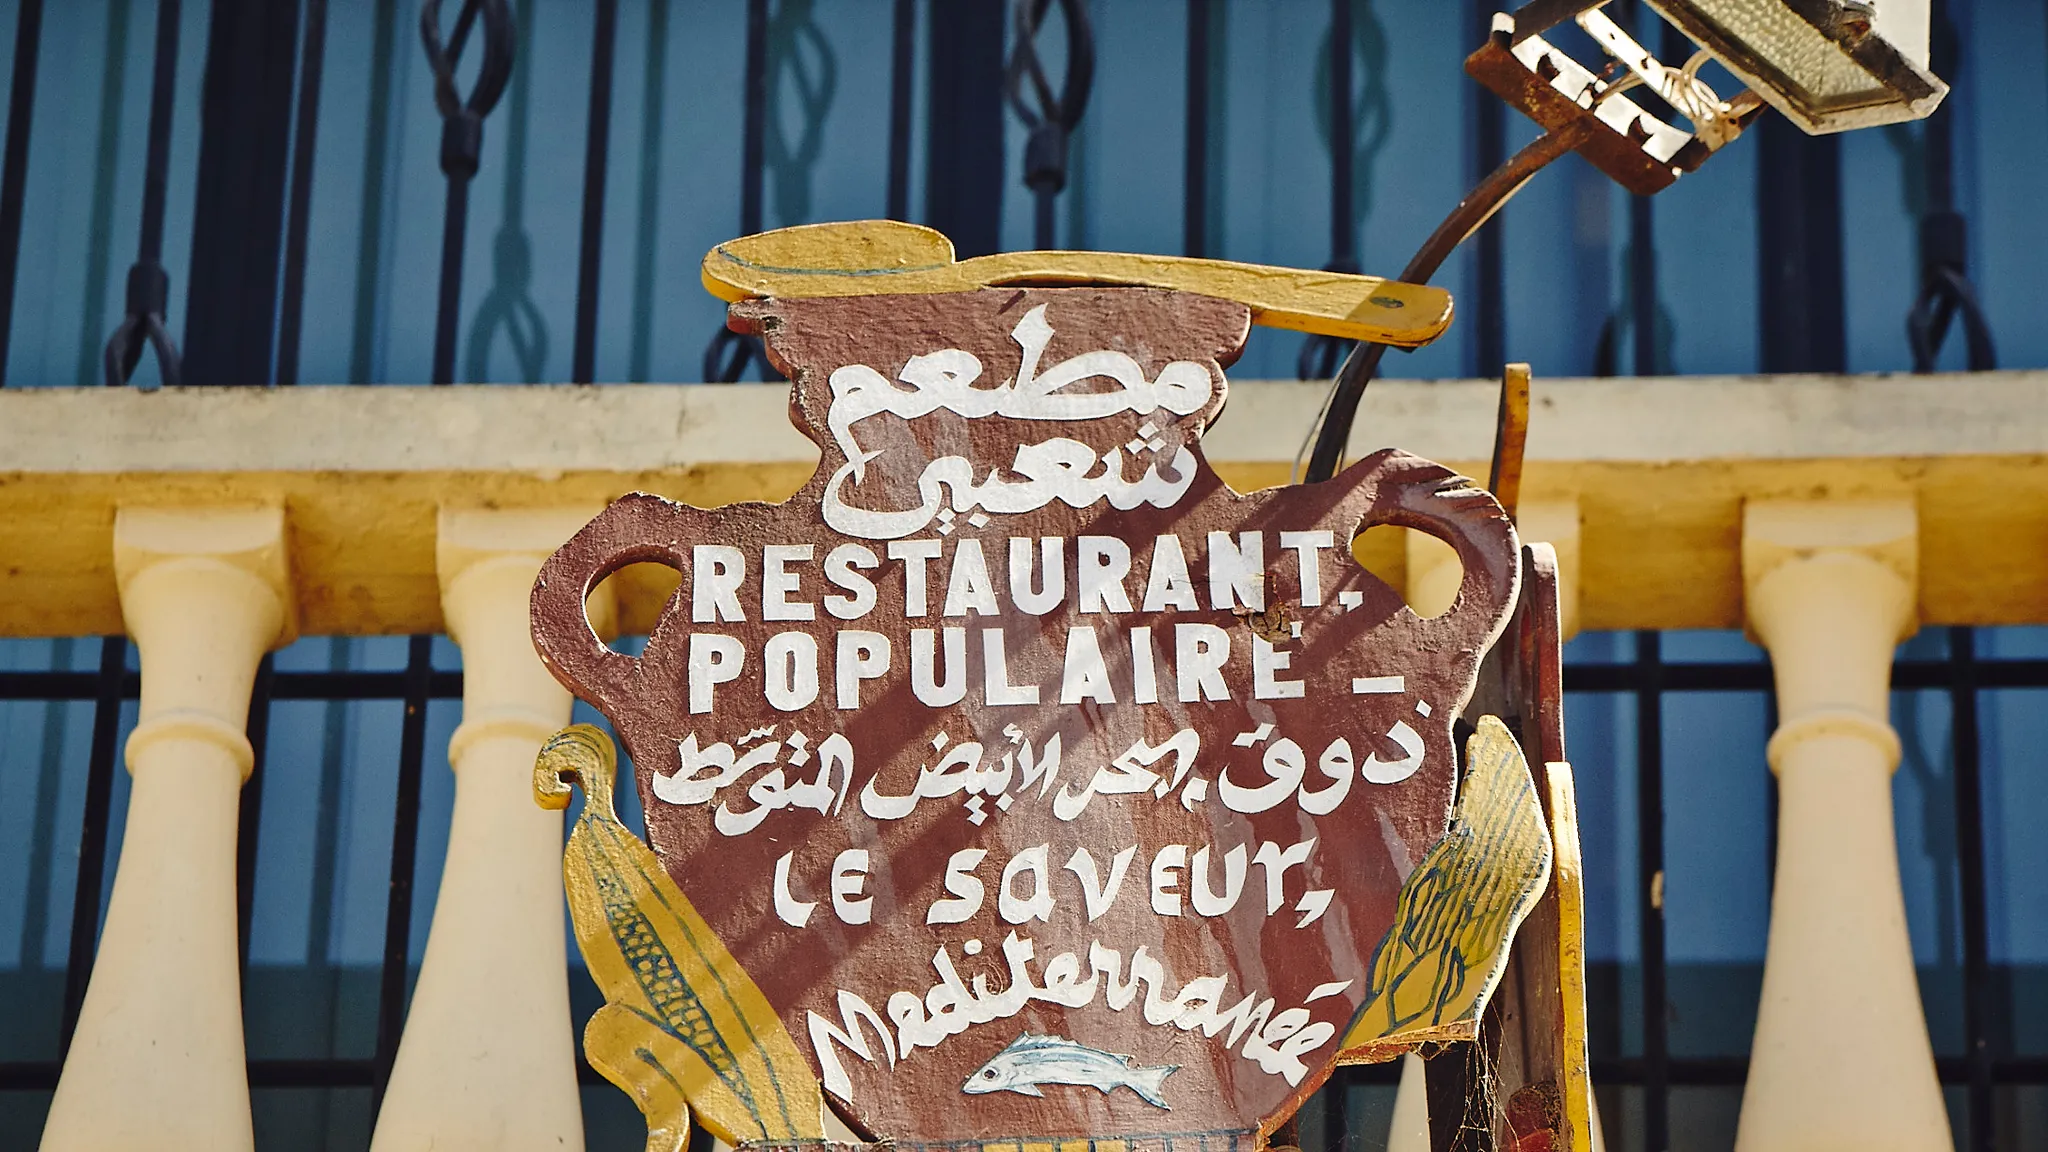 مطعم
شعبي
RESTAURANT,
POPULAIRE -
ذوق البحر الأبيض المتوسّط
LE SAVEUR,
Mediterranée